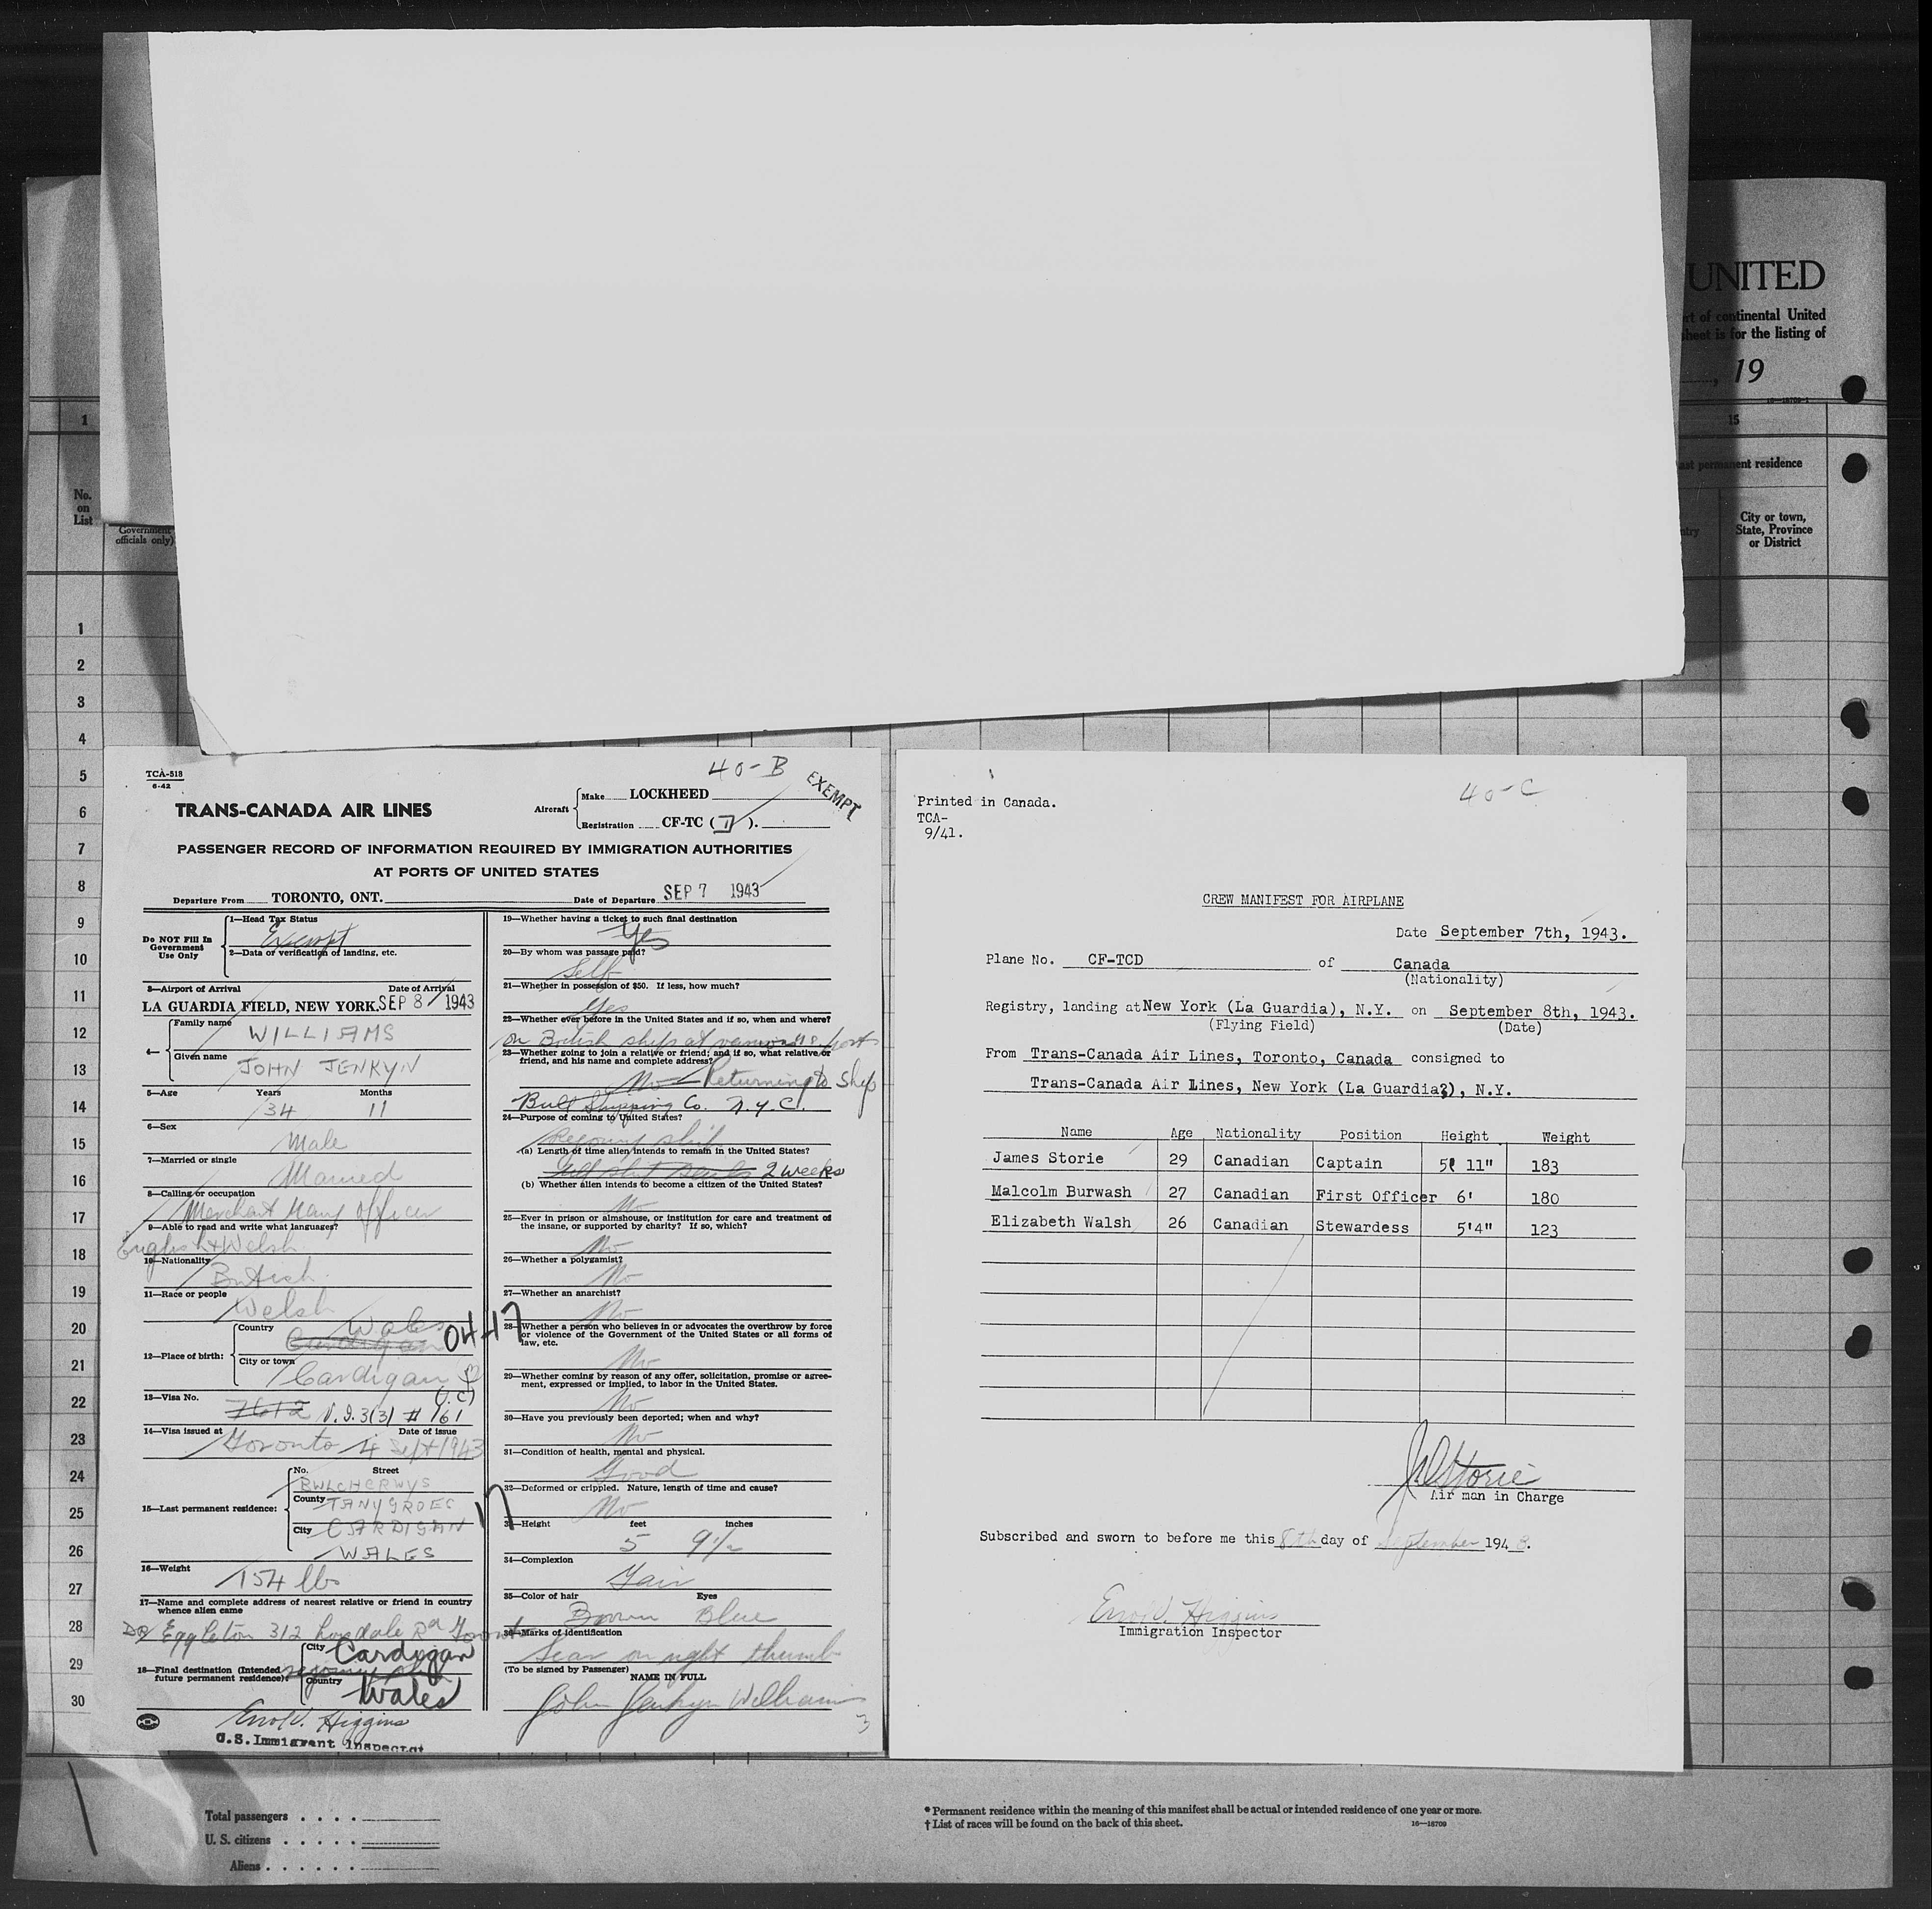 UNITED
rt of continental United
sheet is for the listing of
, 19
16—18709-1
1
15
ast permanent residence
No.
on
List
Government
officials only)
ntry
City or town,
State, Province
or District
1
2
3
4
5
6
7
8
9
10
11
12
13
14
15
16
17
18
19
20
21
22
23
24
25
26
27
28
29
30
TCA-518
6-42
40-B
EXEMPT
TRANS-CANADA AIR LINES
Aircraft
Make LOCKHEED
Registration CF-TC (D).
PASSENGER RECORD OF INFORMATION REQUIRED BY IMMIGRATION AUTHORITIES
AT PORTS OF UNITED STATES
Departure From TORONTO, ONT. Date of Departure SEP 7 1943
Do NOT Fill In
Government
Use Only
1—Head Tax Status
Exempt
2—Data or verification of landing, etc.
3—Airport of Arrival Date of Arrival
LA GUARDIA FIELD, NEW YORK. SEP 8 1943
4—
Family name
WILLIAMS
Given name
JOHN JENKYN
5—Age Years Months
34 11
6—Sex
Male
7—Married or single
Married
8—Calling or occupation
Merchant Navy Officer
9—Able to read and write what languages?
English & Welsh
10—Nationality
British
11—Race or people
Welsh
12—Place of birth:
Country
Wales
Cardigan
04-17
City or town
Cardigan
13—Visa No.
(J.C)
7612 V.I. 3(3) # 161
14—Visa issued at Date of issue
Toronto 4 Sept 1943
15—Last permanent residence:
No. Street
BWLCHERWYS
County TANYGROES
City CARDIGAN
17
WALES
16—Weight
154 lbs
17—Name and complete address of nearest relative or friend in country
whence alien came
Dr Eggleton 312 Lonsdale Rd Toronto
18—Final destination (Intended
future permanent residence):
City Cardigan
Country
Wales
Errol V. Higgins
U.S. Immigrant Inspector
19—Whether having a ticket to such final destination
Yes
20—By whom was passage paid?
Self
21—Whether in possession of $50. If less, how much?
Yes
22—Whether ever before in the United States and if so, when and where?
on British ships at various U.S. ports
23—Whether going to join a relative or friend; and if so, what relative or
friend, and his name and complete address?
No Returning to ship
Bull Shipping Co. N.Y.C.
24—Purpose of coming to United States?
Rejoining ship
(a) Length of time alien intends to remain in the United States?
Till ship sails 2 weeks
(b) Whether alien intends to become a citizen of the United States?
No
25—Ever in prison or almshouse, or institution for care and treatment of
the insane, or supported by charity? If so, which?
No
26—Whether a polygamist?
No
27—Whether an anarchist?
No
28—Whether a person who believes in or advocates the overthrow by force
or violence of the Government of the United States or all forms of
law, etc.
No
29—Whether coming by reason of any offer, solicitation, promise or agree-
ment, expressed or implied, to labor in the United States.
No
30—Have you previously been deported; when and why?
No
31—Condition of health, mental and physical.
Good
32—Deformed or crippled. Nature, length of time and cause?
No
33—Height feet inches
5 9½
34—Complexion
Fair
35—Color of hair Eyes
Brown Blue
36—Marks of identification
Scar on right thumb
(To be signed by Passenger)
NAME IN FULL
John Jenkyn Williams
3
40-C
Printed in Canada.
TCA-
9/41.
CREW MANIFEST FOR AIRPLANE
Date September 7th, 1943.
Plane No. CF-TCD of Canada
(Nationality)
Registry, landing at New York (La Guardia), N.Y. on September 8th, 1943.
(Flying Field) (Date)
From Trans-Canada Air Lines, Toronto, Canada consigned to
Trans-Canada Air Lines, New York (La Guardia), N.Y.
Name Age Nationality Position Height Weight
James Storie 29 Canadian Captain 5' 11" 183
Malcolm Burwash 27 Canadian First Officer 6' 180
Elizabeth Walsh 26 Canadian Stewardess 5'4" 123
J Storie
Air man in Charge
Subscribed and sworn to before me this 8th day of September 1943.
Errol V. Higgins
Immigration Inspector
Total passengers . . . .
U. S. citizens . . . . .
Aliens . . . . . .
* Permanent residence within the meaning of this manifest shall be actual or intended residence of one year or more.
† List of races will be found on the back of this sheet.
16—18709